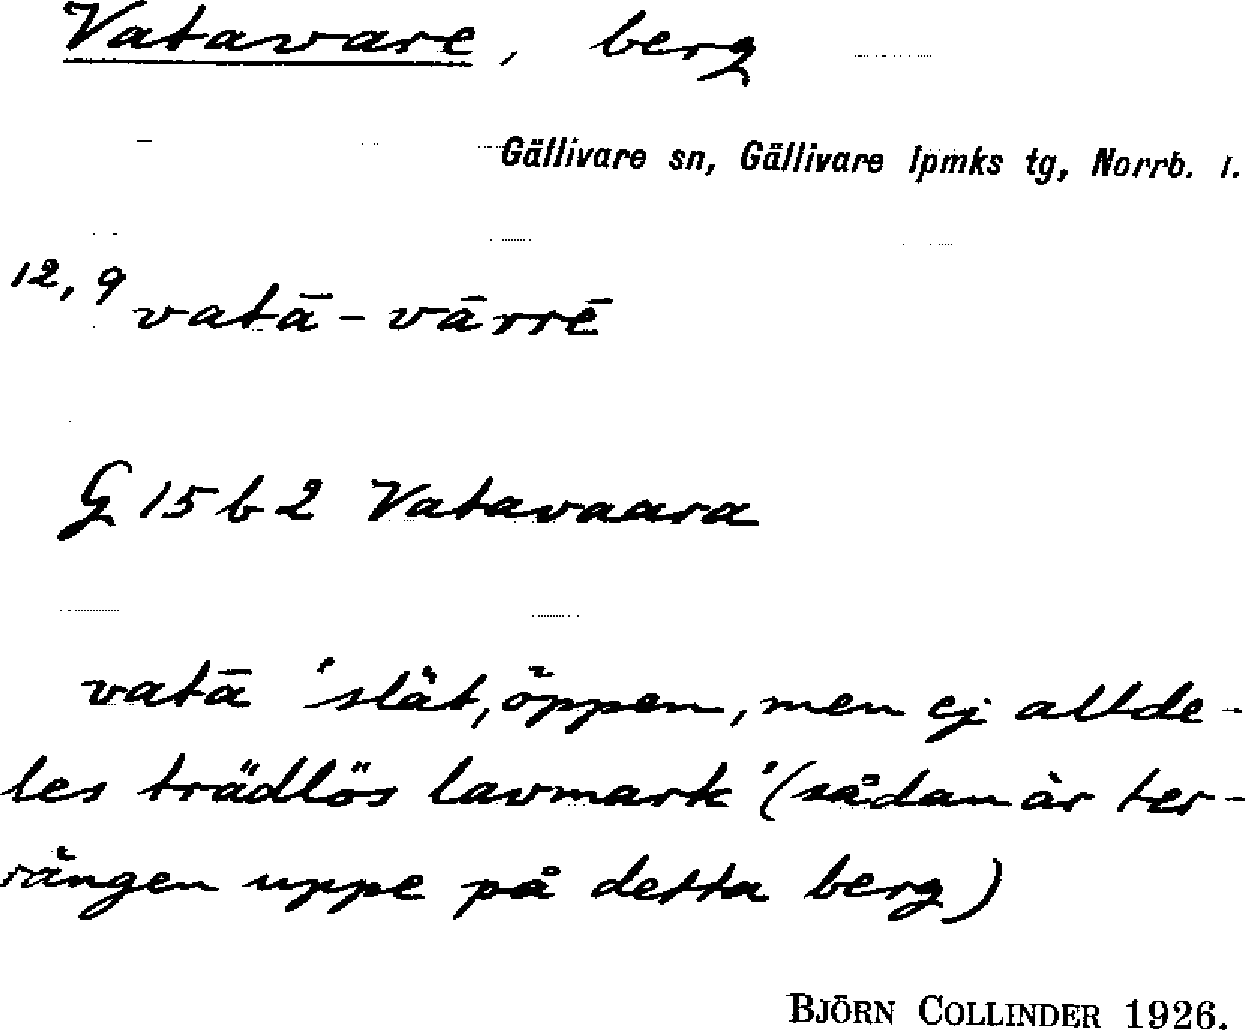 Vatavare, berg
Gällivare sn, Gällivare lpmks tg, Norrb. l.
12,9 vatā-vārrē
G 15 b 2 Vatavaara
vatā 'slät, öppen, men ej allde-
les trädlös lavmark' (sådan är ter-
rängen uppe på detta berg)
BJÖRN COLLINDER 1926.